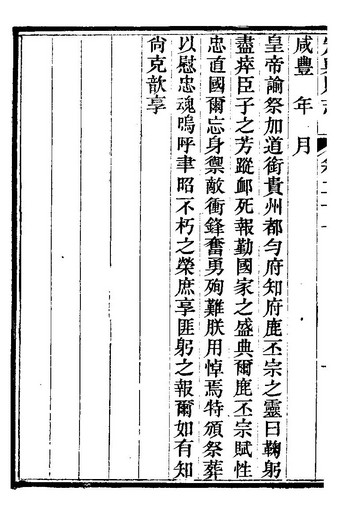 咸豐 年 月
皇帝諭祭加道銜貴州都勻府知府鹿丕宗之靈曰鞠躬
盡瘁臣子之芳蹤卹死報勤國家之盛典爾鹿丕宗賦性
忠直國爾忘身禦敵衝鋒奮勇殉難朕用悼焉特頒祭葬
以慰忠魂嗚呼聿昭不朽之榮庶享匪躬之報爾如有知
尙克歆享